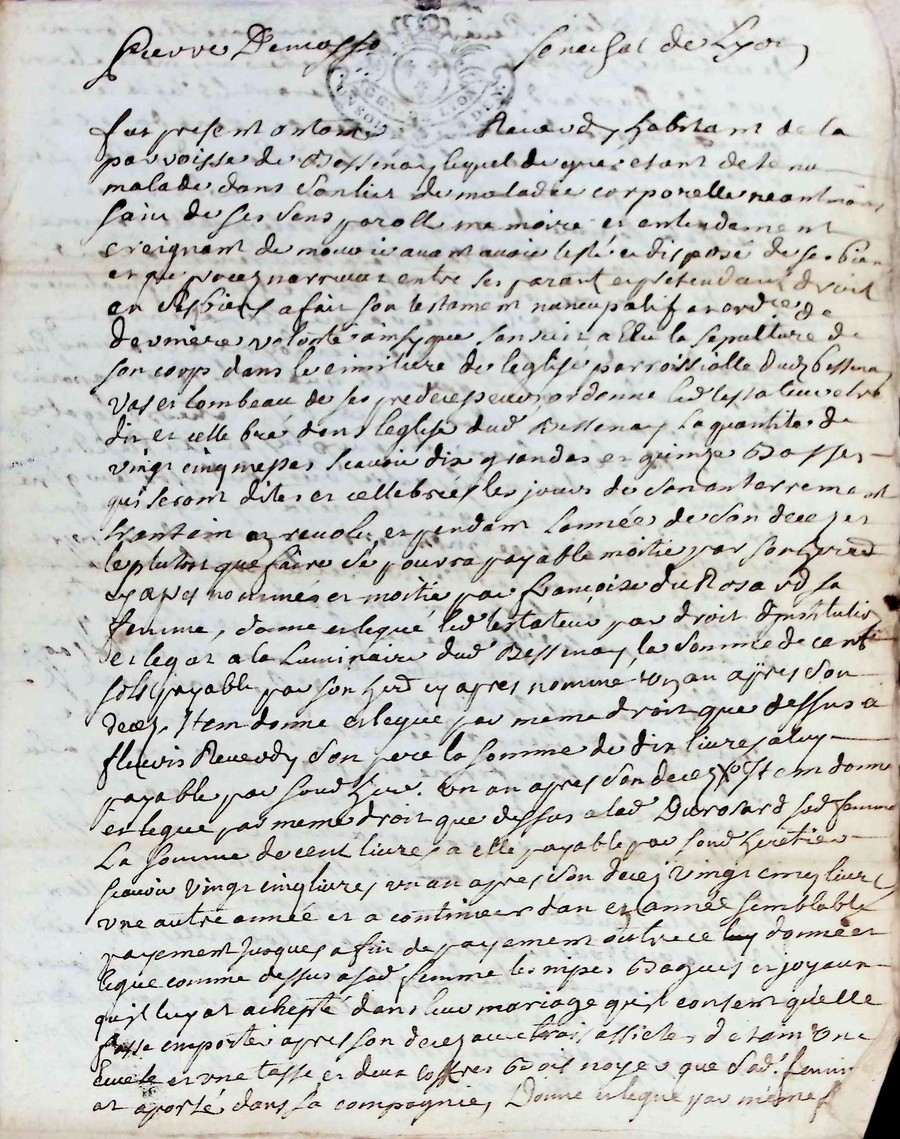 Pierre Senechal de Lyon
fut present Antoine Reverdy habitant de la
parroisse de Bessenay lequel de gré etant detenu
malade dans son lict de maladie corporelle neantmoins
sain de ses sens parolle memoire et entendement
creignant de mourir avant avoir testé et disposé de ses biens
et que procez n'arrivat entre ses parant et prétendant droit
en ses biens a fait son testament nuncupatif et ordre de
derniere volonté ainsy que sensuit a Elu la sepulture de
son corp dans le cimitiere de leglise parroissialle dud Bessenay
vas et tombeau de ses predecesseurs ordonne led testateur etre
dit et cellebré dans leglise dud Bessenay la quantité de
vingt cinq messes scavoir dix grandes et quinze Basses
qui seront dites et cellebrées les jours de son anterrement
trantain et revolu et pendant lannée de son decez et
le plutost que faire se pourra payable moitié par son herd
cy apres nommé et moitié par francoise du Rosard sa
femme, donne et legue led testateur par droit d'institution
et legat a la Luminaire dud Bessenay la somme de cent
sols payable par son herd cy apres nommé un an apres son
decez, Item donne et legue par meme droit que dessus a
fleuris Reverdy son pere la somme de dix livres a luy
payable par sond her. un an apres son decez Item donne
et legue par meme droit que dessus a lad Durosard sad femme
La somme de cent livres a elle payable par sond heretier
scavoir vingt cinq livres un an apres son decez vingt cinq livres
une autre année et a continuer dan en année semblable
payement jusques a fin de payement outre ce donne et
legue comme dessus a sad femme les nipes Bagues et joyaux
quil luy at achepté dans leur mariage qu'il consent qu'elle
fasse emporter apres son decez avec trois assiettes d'etaim une
Ecuele et une tasse et deux coffres Bois noyer que sad. femme
at aporté dans sa compagnie, Donne et legue par meme